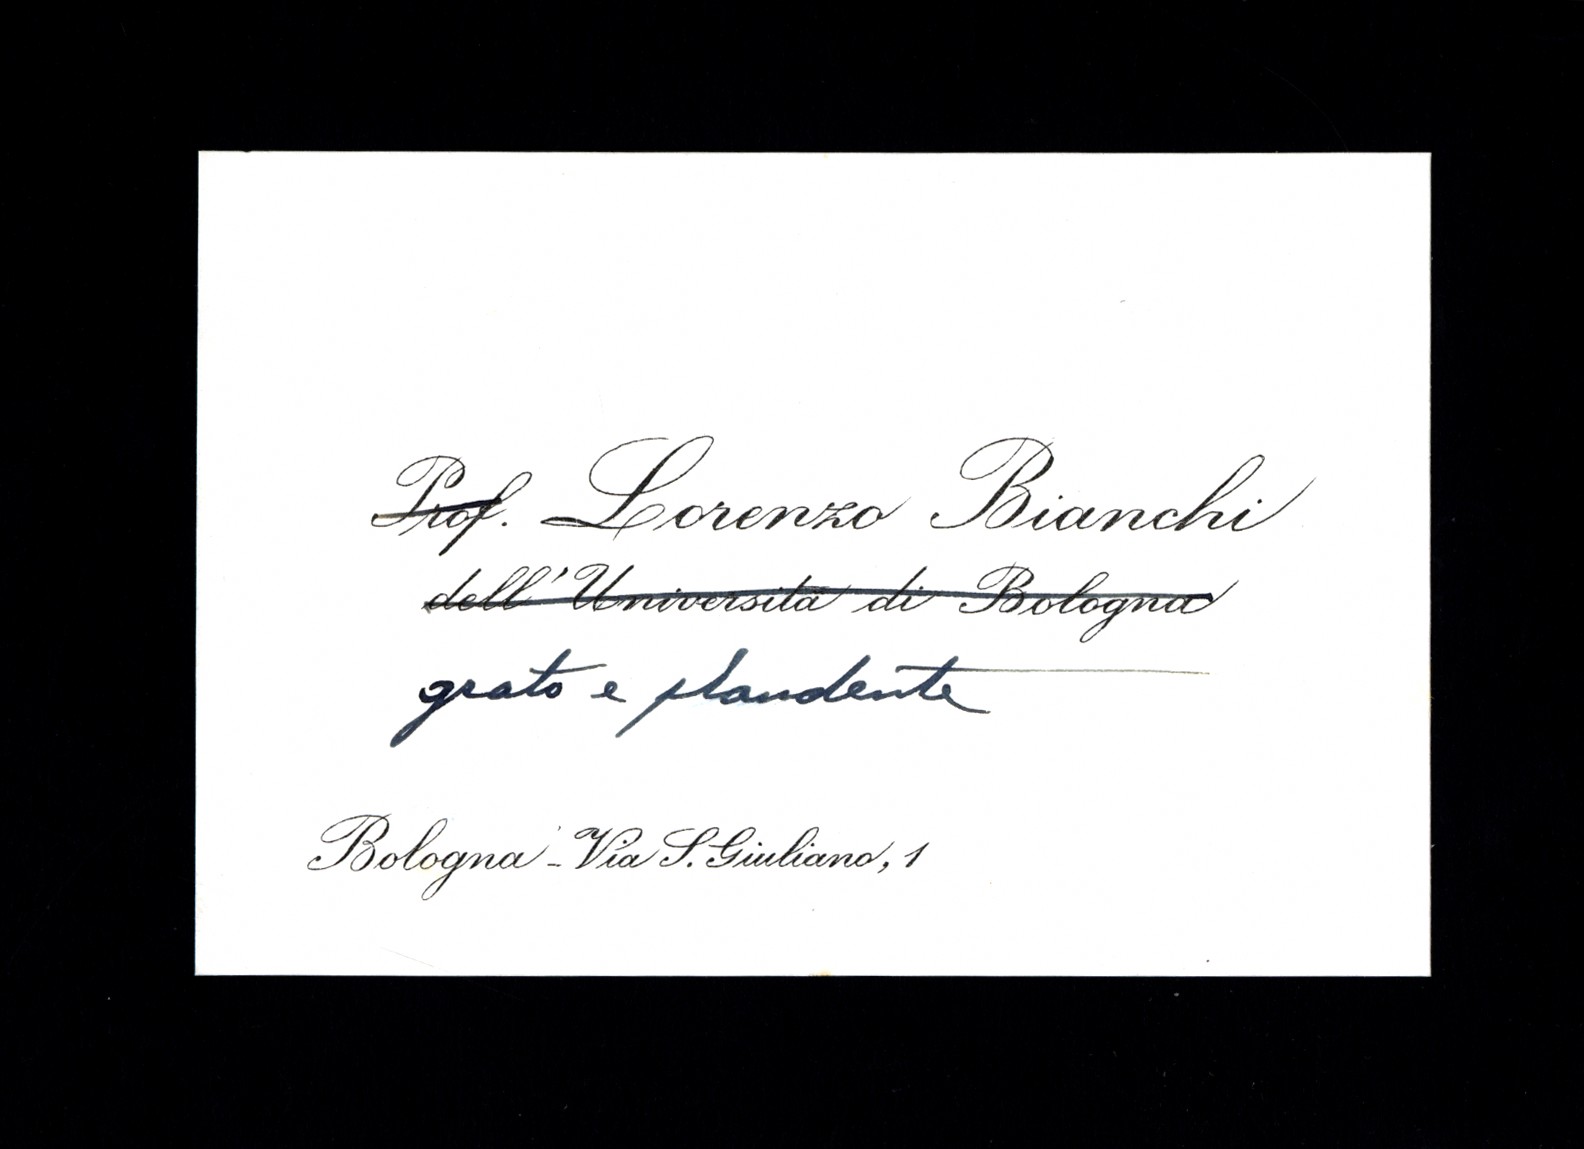 Prof. Lorenzo Bianchi
dell'Università di Bologna
grato e plaudente
Bologna - Via S. Giuliano, 1